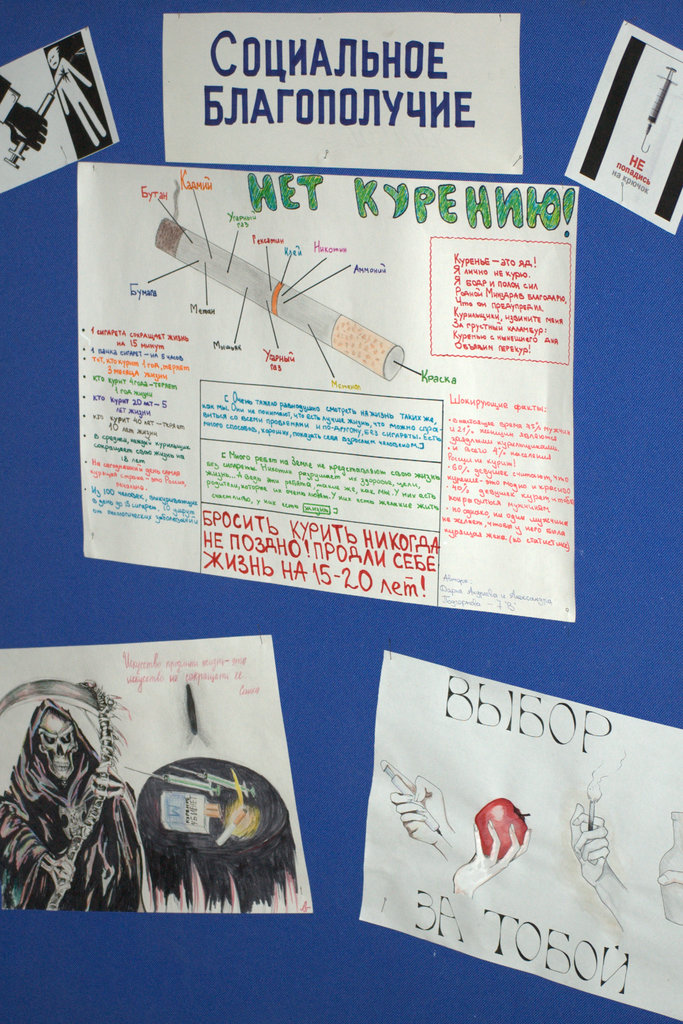 СОЦИАЛЬНОЕ
БЛАГОПОЛУЧИЕ
НЕ
попадись
на крючок
НЕТ КУРЕНИЮ!
Бутан
Кадмий
Угарный
газ
Гексамин
Клей
Никотин
Аммоний
Бумага
Метан
Мышьяк
Угарный
газ
Метанол
Краска
Куренье – это яд!
Я лично не курю.
Я бодр и полон сил
Родной Минздрав благодарю,
Что он предупредил.
Курильщики, извините меня
За грустный каламбур:
Куренью с нынешнего дня
Объявим перекур!
• 1 сигарета сокращает жизнь
на 15 минут
• 1 пачка сигарет – на 5 часов
• тот, кто курит 1 год, теряет
3 месяца жизни
• кто курит 4 года – теряет
1 год жизни
• кто курит 20 лет – 5
лет жизни
• кто курит 40 лет – теряет
10 лет жизни
• в среднем, каждый курильщик
сокращает свою жизнь на
18 лет
• На сегодняшний день самая
курящая страна – это Россия,
• Из 100 человек,
в день до 15 сигарет,
от онкологических заболеваний
Очень тяжело равнодушно смотреть на жизнь таких же,
как мы. Они не понимают, что есть лучше жизнь, что можно спра-
виться со всеми проблемами и по-другому, без сигареты. Есть
много способов, хороших, показать себя взрослым человеком
Много ребят на Земле не представляют свою жизнь
без сигареты. Никотин разрушает их здоровье, цели,
жизнь... А ведь эти ребята такие же, как мы. У них есть
родители, которые их очень любят. У них есть желание жить
счастливо, у них есть жизнь
БРОСИТЬ КУРИТЬ НИКОГДА
НЕ ПОЗДНО! ПРОДЛИ СЕБЕ
ЖИЗНЬ НА 15-20 лет!
Шокирующие факты:
• в настоящее время 75% мужчин
и 21% женщин являются
заядлыми курильщиками,
и всего 4% населения
России не курит!
• 60% девушек считают, что
курение – это модно и красиво
• 40% девушек курят, чтобы
понравиться мужчинам
• но однако, ни один мужчина
не желает, чтобы у него была
курящая жена (по статистике)
Авторы:
Дарья и Александра
– 7 "В"
Искусство продлить жизнь – это
искусство не сокращать её...
ВЫБОР
ЗА ТОБОЙ